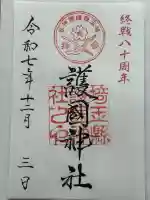 終戦八十周年
護國神社
埼玉縣
社之印
令和七年十二月三日